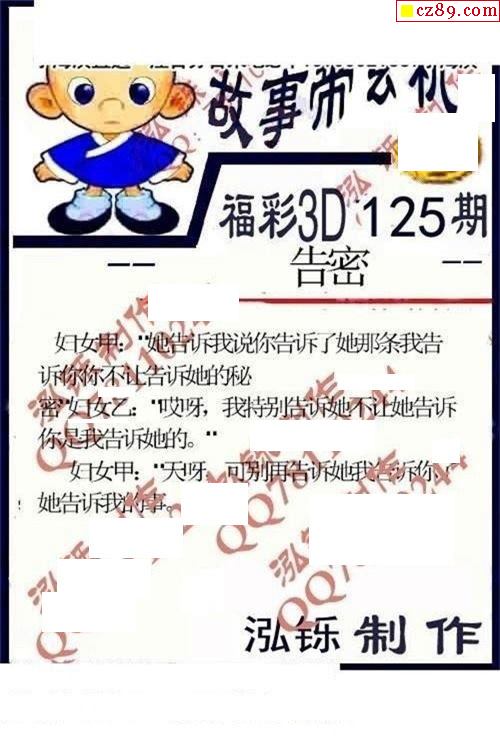 cz89.com
故事带玄机
福彩3D 125期
告密
妇女甲："她告诉我说你告诉了她那条我告
诉你你不让告诉她的秘
密"妇女乙："哎呀，我特别告诉她不让她告诉
你是我告诉她的。"
妇女甲："天呀，可别再告诉她我告诉你，
她告诉我的事。
泓铄制作